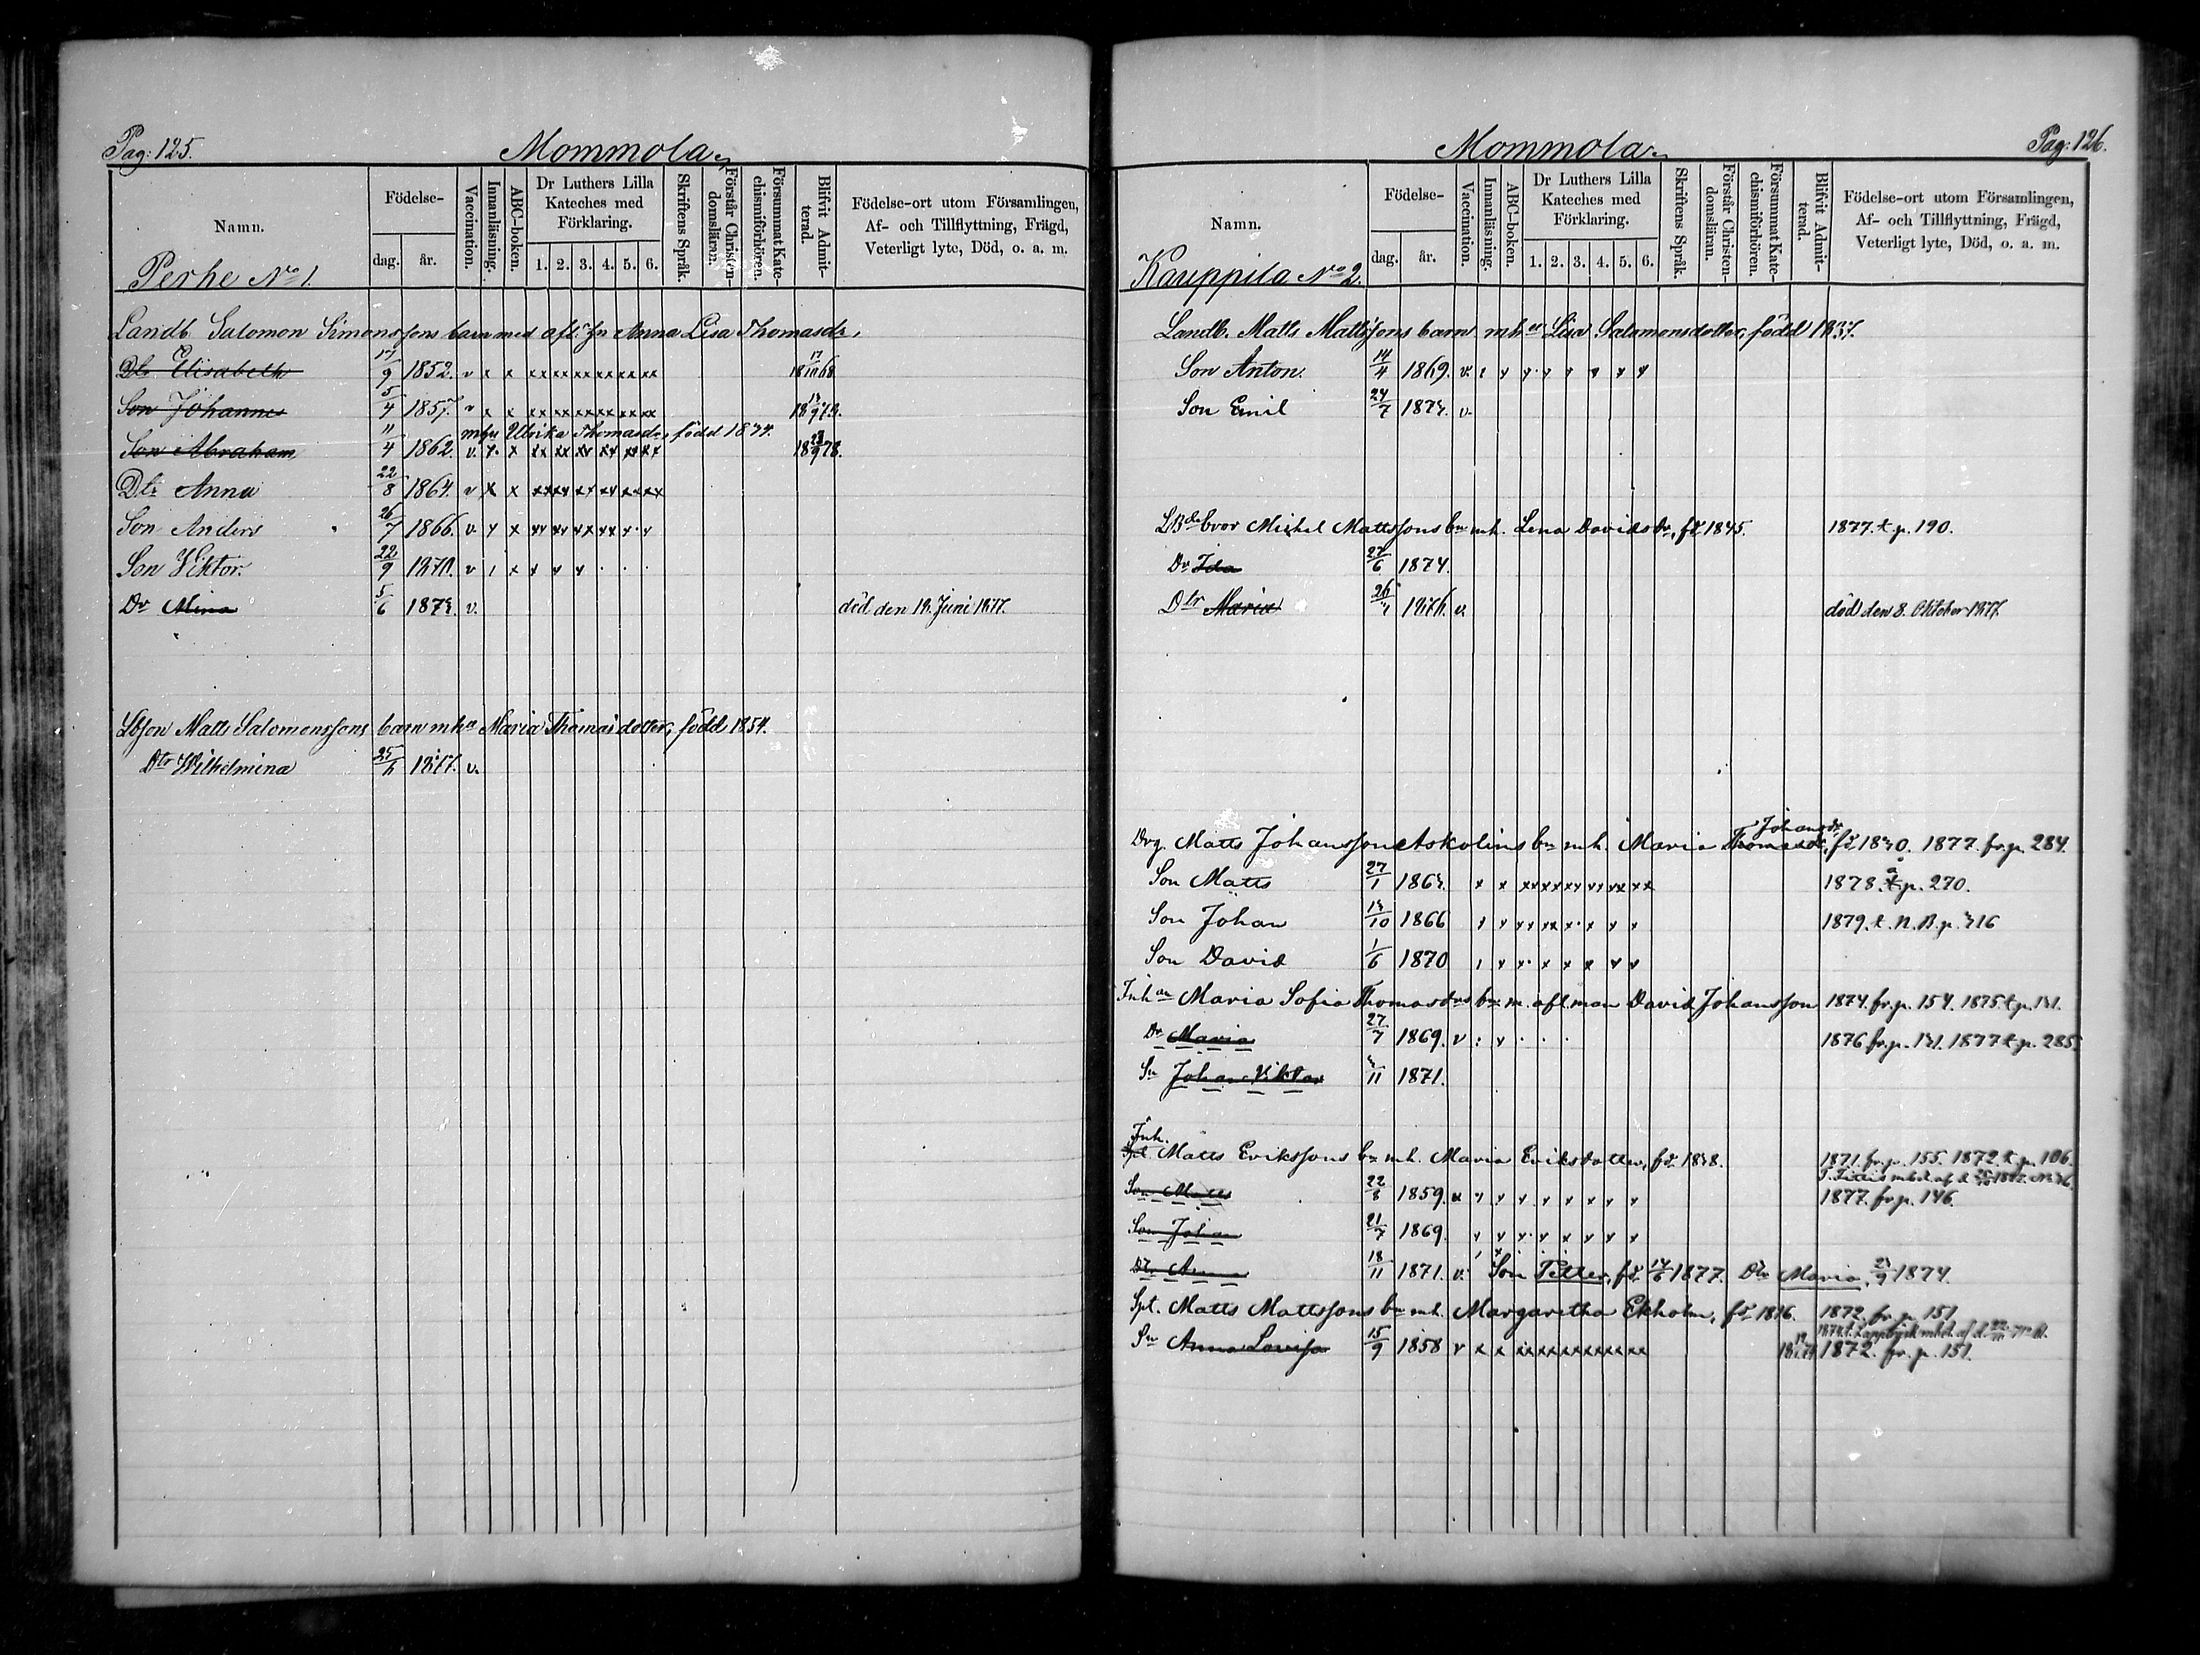 Pag: 125.
Mommola
Namn.
Födelse-
dag.
år.
Vaccination.
Innanläsning.
ABC-boken.
Dr Luthers Lilla Kateches med Förklaring.
1. 2. 3. 4. 5. 6.
Skriftens Språk.
Förstår Christendomsläran.
Försummat Katechismiförhören.
Blifvit Admitterad.
Födelse-ort utom Församlingen, Af- och Tillflyttning, Frägd, Veterligt lyte, Död, o. a. m.
Perhe No 1.
Landb. Salomon Simonssons barn med afl. hu Anna Lisa Thomasdr.
Dtr Elisabeth 17/9 1852. v x x xx xx xx xx xx xx
Son Johannes 5/4 1857. v x x xx xx xx xx xx xx
mhu Ulrika Thomasdr, född 18
Son Abraham 11/4 1862. v. x x xx xx xx xx xx xx
Dtr Anna 22/8 1864. v x x xx xx xx xx xx xx
Son Anders 26/7 1866. v. x x xx xx xx xx x x
Son Viktor. 22/9 1870. v
Dr Mina 5/6 187 v. död den 18. Juni 1877.
Lbson Matts Salomonssons barn mhu Maria Thomasdotter, född 1854.
Dtr Wilhelmina 25/6 1877. v.
Pag: 126.
Mommola
Namn.
Födelse-
dag.
år.
Vaccination.
Innanläsning.
ABC-boken.
Dr Luthers Lilla Kateches med Förklaring.
1. 2. 3. 4. 5. 6.
Skriftens Språk.
Förstår Christendomsläran.
Försummat Katechismiförhören.
Blifvit Admitterad.
Födelse-ort utom Församlingen, Af- och Tillflyttning, Frägd, Veterligt lyte, Död, o. a. m.
Kauppila No 2.
Landb. Matts Mattssons barn mhu Lisa Salomonsdotter, född 1837.
Son Anton. 14/4 1869. v.
Son Emil 24/7 187 v.
bror Michel Mattssons bn mh. Lena Davidsdr, fd 1845. 1877. t. p. 190.
Dr Ida 27/6 1874.
Dtr Maria 1876. v. död den 8. Oktober 1877.
Drg. Matts Johansson Askolins bn mh. Maria Thomasdr, Johansdr, 1877. fr. p. 284.
Son Matts 27/1 186 x x xx xx xx xx xx xx 1878. p. 270.
Son Johan 1866 1879. t. N. B. p.
Son David 1/6 1870
Inh. Maria Sofia Thomasdrs bn m. afl. man David Johansson 1874. fr. p. 154. 1875. t. p.
Dr Maria 27/7 1869. v 1876 fr. p. 1877 t. p. 285.
Sn Johan Viktor 1871.
Inh.
Spt Matts Erikssons bn mh. Maria Eriksdotter, fd. 1871. fr. p. 155. 1872. t. p. 106.
Son Matts 22/8 1859. 1877. fr. p. 146.
Son Johan 21/7 1869
Dtr Anna 18/11 1871. v. Son Petter, fd. 1877. Dtr Maria, 1874.
Spt. Matts Mattssons bn mh. Margaretha Ekholm, fd 1872. fr. p. 151
Anna Lovisa 15/9 1858 v x x xx xx xx xx xx xx 1872. fr. p. 151.